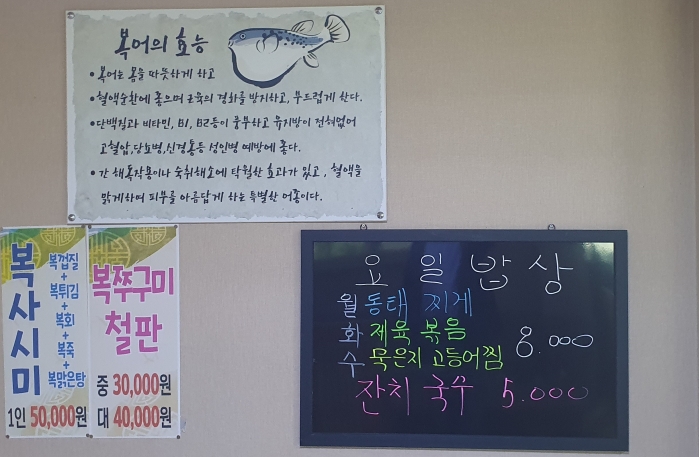 복어의 효능
•복어는 몸을 따뜻하게 하고
•혈액순환에 좋으며 근육의 경화를 방지하고, 부드럽게 한다.
•단백질과 비타민, B1, B2등이 풍부하고 유지방이 전혀없어
고혈압,당뇨병,신경통등 성인병 예방에 좋다.
•간 해독작용이나 숙취해소에 탁월한 효과가 있고, 혈액을
맑게하며 피부를 아름답게 하는 특별한 어종이다.
복사시미
복껍질
+
복튀김
+
복회
+
복죽
+
복맑은탕
1인 50,000원
복쭈구미
철판
중 30,000원
대 40,000원
요일밥상
월 동태 찌게
화 제육 볶음
수 묵은지 고등어찜
8.000
잔치 국수 5.000